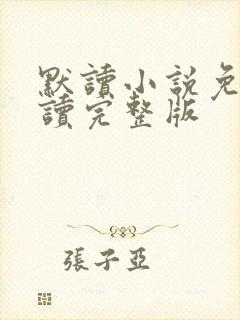 默讀小說免
讀完整版
張子亞